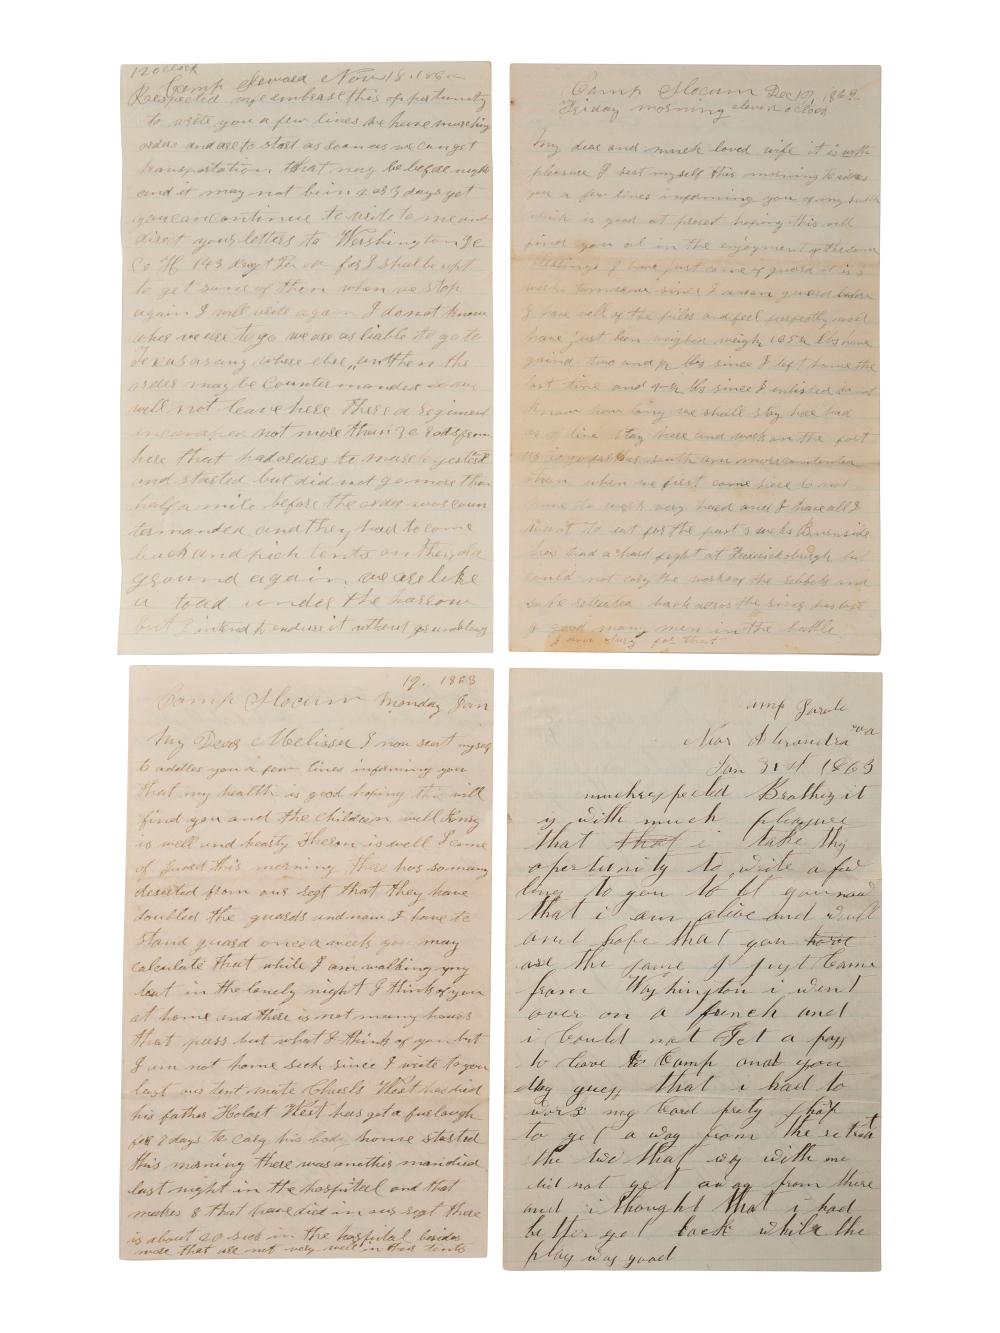 12 oclock
Camp Seward Nov 18. 1862
Respected wife embrase this oppertunity
to write you a few lines we have marching
orders and are to start as soon as we can get
transportation that may be before night
and it may not be in 2 or 3 days yet
you can continue to write to me and
direct your letters to Washington DC
Co H 143 Regt for I shall be apt
to get some of them when we stop
again I will write again I do not know
where we are to go we are as liable to go to
Texas as any where else, and then the
order may be countermanded so we
will not leave here There a regiment
incamped not more than 30 rods from
here that had orders to march yesterd
and started but did not go more than
half a mile before the order was coun
termanded and they had to come
back and pich tents on the old
ground again we are like
a toad under the harrow
but I intend to endure it without grumbling
Camp Slocum Dec 19, 1862
Friday morning eleven oclock
My dear and much loved wife it is with
pleasure I seat myself this morning to
you a few lines informing you of my health
which is good at presnt hoping this will
find you al in the enjoyment of the same
blessings I have just came of guard it is 3
weeks tomorrow since I was on guard before
I have well of the piles and feel perfectly well
have just been weighed weigh 165½ lbs have
gained two and ½ lbs since I left home the
last time and lbs since I enlisted do not
know how long we shall stay here had
as live stay here and work on the fort
as to go farther south am more contented
than when we first came here do not
have to work very hard and I have all I
want to eat for the past 3 weeks Burnside
has had a hard fight at Fredricksburgh but
could not cary the works of the rebbels and
so he retreated back across the river has lost
a good many men in the battle
I am sorry for that
19. 1863
Camp Slocum Monday Jan
My Dear Melissa I now seat myself
to addres you a few lines informing you
that my health is good hoping this will
find you and the children well Henry
is well and hearty Theron is well I came
of guard this morning there has so many
deserted from our regt that they have
doubled the guards and now I have to
stand guard once a week you may
calculate that while I am walking my
beat in the lonely night I think of you
at home and there is not many hours
that pass but what I think of you but
I am not home sick since I wrote to you
last our tent mate Charls West has died
his father Holest West has got a furlough
for 8 days to cary his body home started
this morning there was another man died
last night in the hospital and that
makes 8 that have died in our regt there
is about 20 sick in the hospital besides
more that are not very well in their tents
amp
Near Alexandra va
Jan 31st 1863
much respected Brother it
is with much pleasure
that that i take this
opertunity to write a few
lines to you to let you now
that i am alive and well
and hope that you have
are the same I just Came
from Washington i went
over on a french and
i Could not Get a pass
to leave to Camp and you
may guess that i had to
work my Card prety sharp
to get a way from the
the two that was with me
did not get away from there
and i thought that i had
better get back while the
play was good